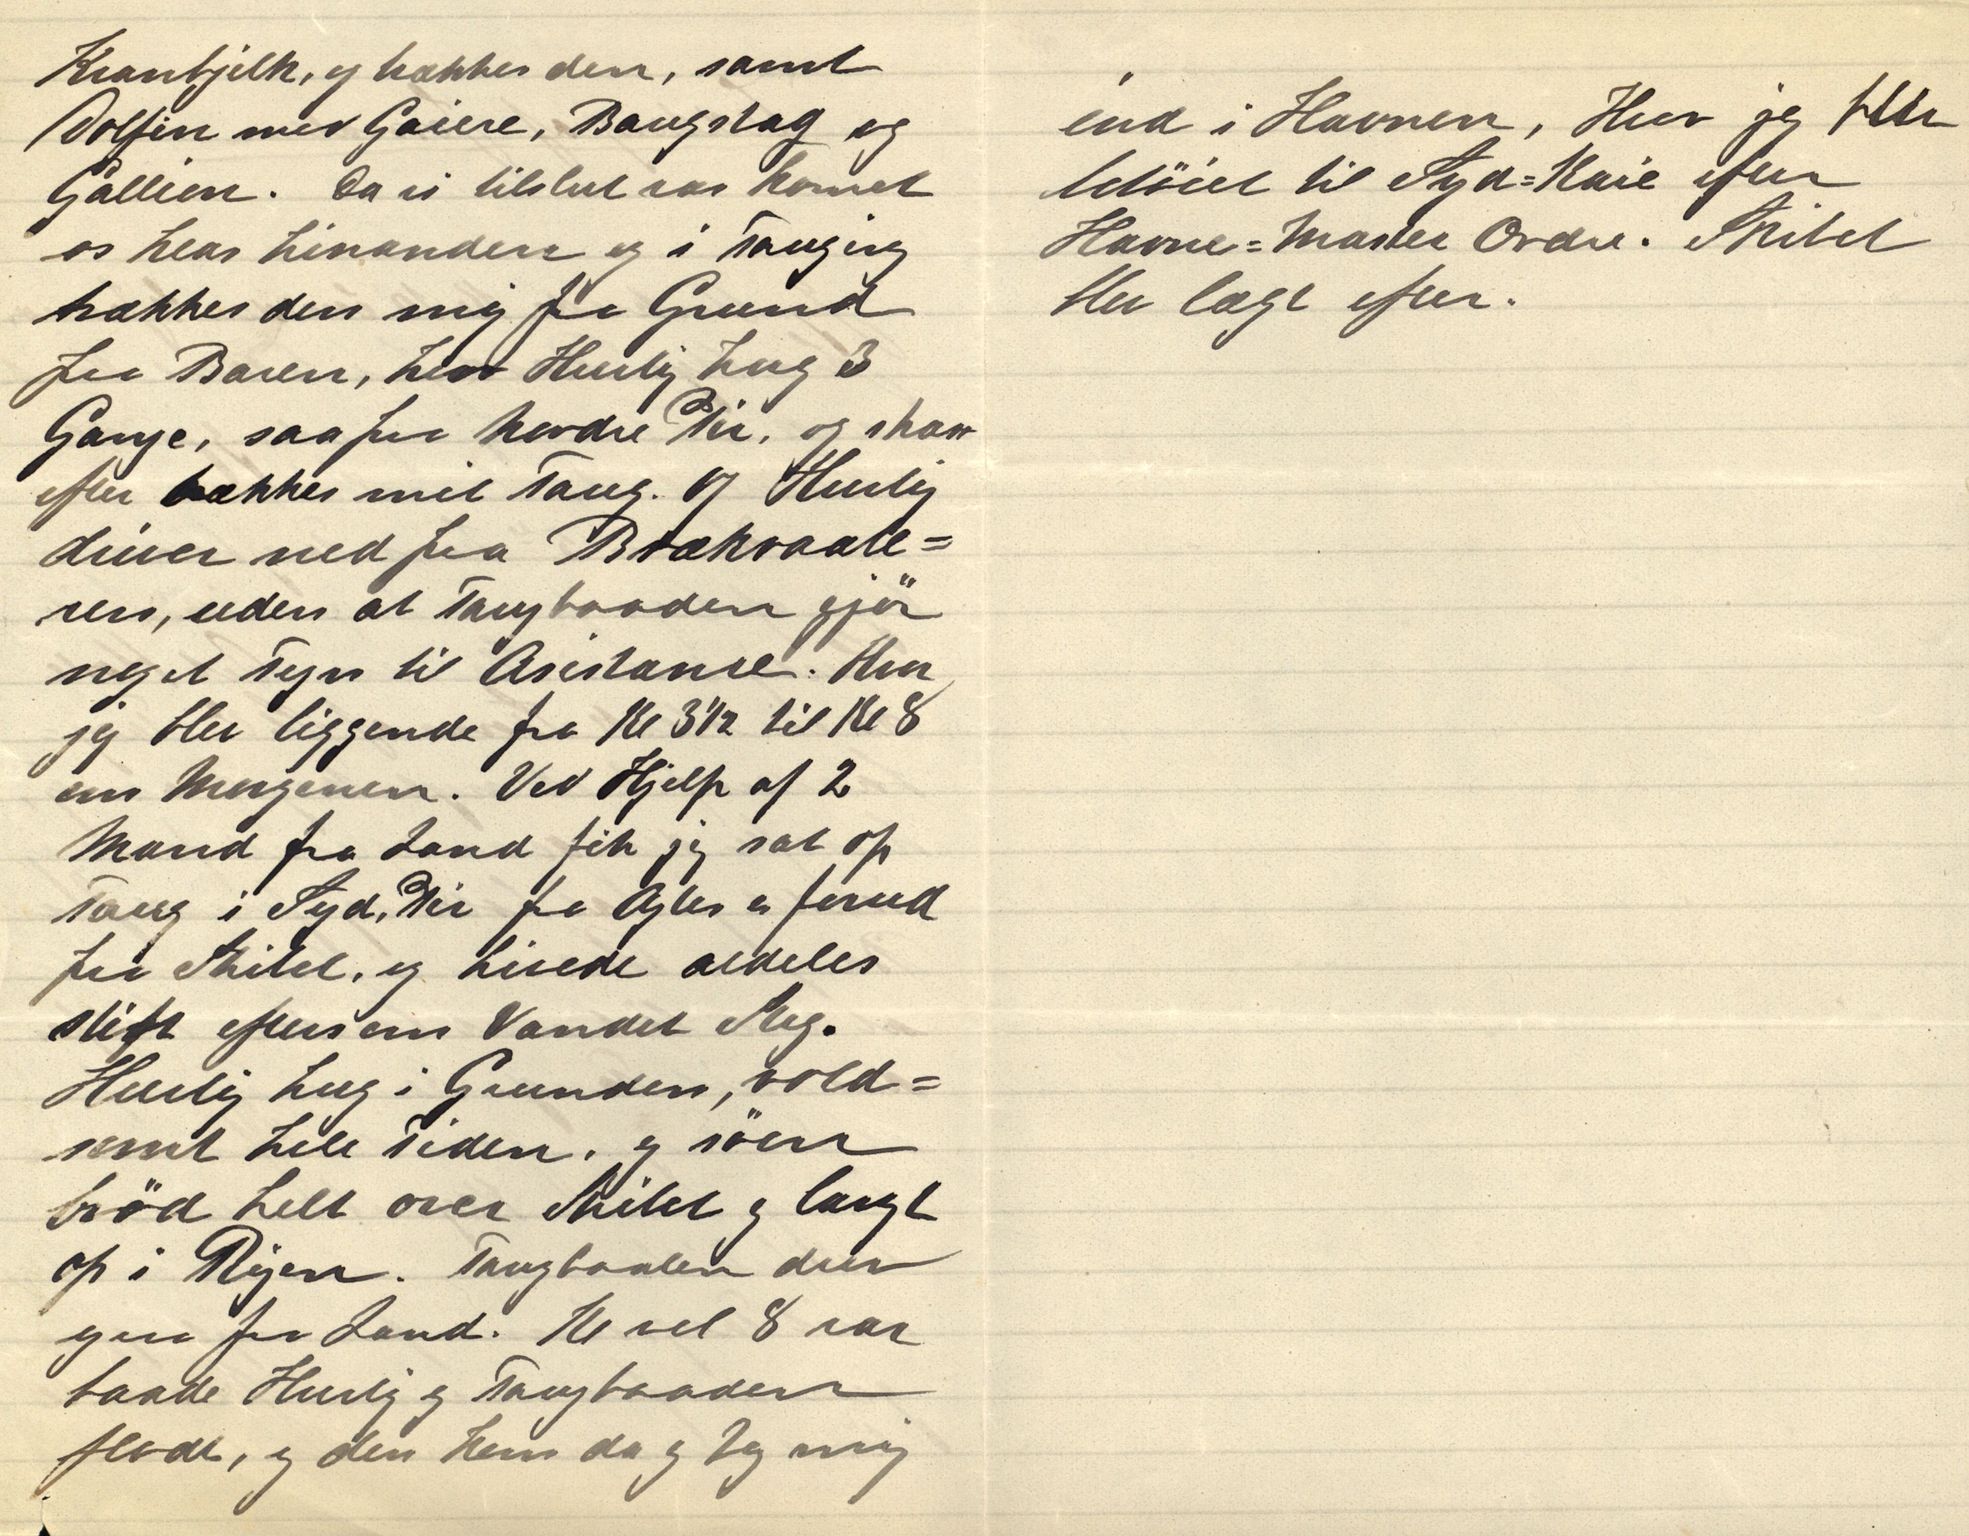 Kranbjelk, og brækkes den, samt
Dolfin med Gaiere, Baugstag og
Gallien. Da vi tilslut var komet
os klar hinanden og i Tauging
trækkes den mig fra Grund
fra Baren, hvor Hurtig hug 3
Gange, saa fra Nordre Pir, og strax
efter brækkes mit Taug. og Hurtig
driver ned fra Brækvaate=
ren, uden at Taugbaaden gjör
noget Tegn til Asistance. Hvor
jeg blev liggende fra Kl 3 1/2 til Kl 8
om Morgenen. Ved Hjelp af 2
Mand fra Land fik jeg sat op
Taug i Syd, Pir fra Agter o forud
fra Skibet, og hivede aldeles
stift eftersom Vandet Steg.
Hurtig hug i Grunden, vold=
somt hele Tiden, og söen
bröd helt over Skibet og langt
op i Rigen. Taugbaaden drev
ogsa fra Land. Kl vel 8 var
baade Hurtig og Taugbaaden
flodt, og den kom da og tog mig
ind i Havnen, Hvor jeg blev
betöiet til Syd=Kaie efter
Havne=Master Ordre. Skibet
blev lægt efter.